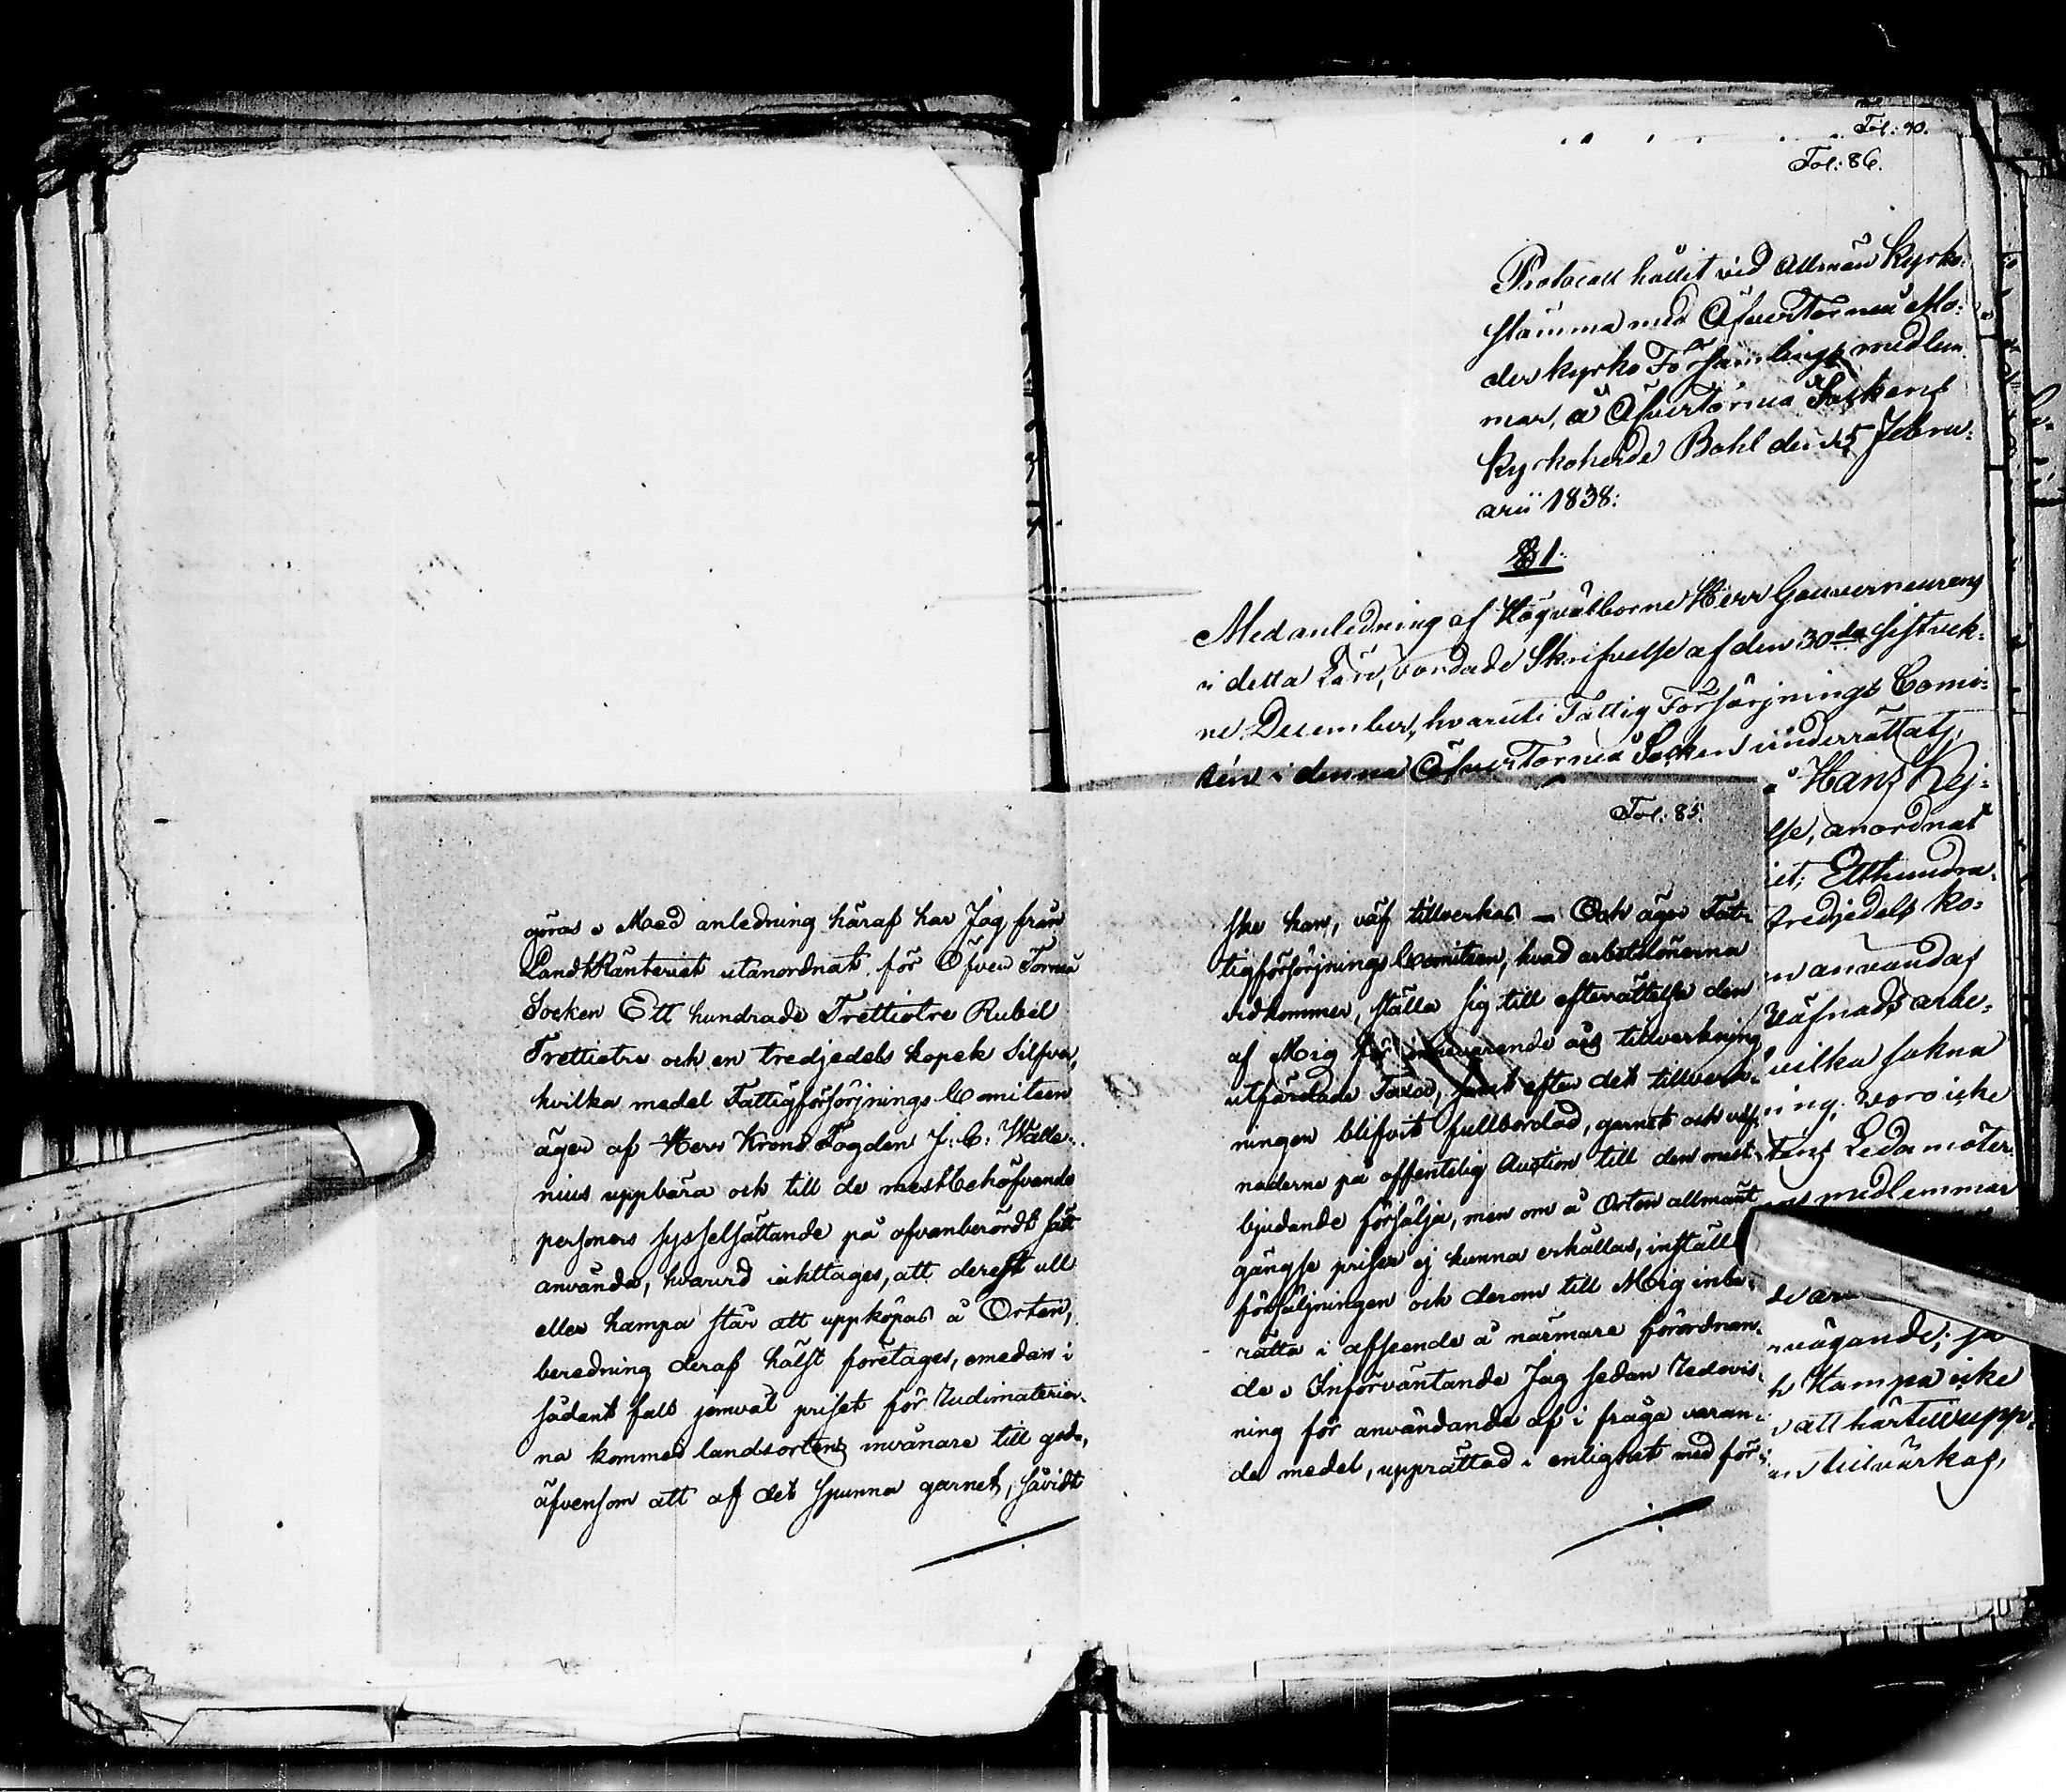 Fol: 90.
Fol: 86.
Protocoll hållit vid Allmän Kyrko-
stämma med ÖfverTorneå Mo-
derkyrko Församlings medlem-
mar, å ÖfverTorneå Sockens
Kyrkoherde Bohl den 25 Febru-
arii 1838:
§ 1.
Med anledning af Högvälborne Herr Gouverneurens
i detta Län, vördade Skrifvelse af den 30de sistvek-
ne December, hvaruti Fattig Försörjnings Comi-
tén i denna ÖfverTorneå Socken underrättats,
Hans Kej-
lse, anordnat
iet; Etthundra-
tredjedels ko-
en användas
Väfnads arbe-
vilka sakna
ning; woro icke
tens Ledamöter
medlemmar
rvägande; ja
h Hampa icke
att härtill upp-
an tillvärkas,
göras. Med anledning häraf har Jag från
LandtRänteriet utanordnat för Öfver Torneå
Socken Ett hundrade Trettiotre Rubel
Trettiotre och en tredjedels kopek Silfver,
hvilka medel Fattigförsörjnings Comiteen
äger af Herr Krono Fogden J: C: Walle-
nius uppbära och till de mestbehöfvande
personers sysselsättande på ofvanberördt sätt
använda, hvarvid iakttages, att derest ull
eller hampa står att uppköpas å Orten,
beredning deraf hälst företages, emedan i
sådant fall jemväl priset för Rudimaterier-
na kommer landsortens invånare till godo,
äfvensom att af det spunna garnet, såvidt
Fol: 85.
ske kan, väf tillverkas – Och äger Fat-
tigförsörjnings Comiteen, hvad arbetslönerna
vidkommer, ställa sig till efterrättelse den
af Mig för innevarande års tillverkning
utfärdade Taxa, samt efter det tillverk-
ningen blifvit fullbordad, garnet och väf-
naderne på offentelig Auction till den mest-
bjudande försälja, men om å Orten allmänt
gängse priser ej kunna erhållas, inställa
försäljningen och derom till Mig inbe-
rätta i afseende å närmare förordnan-
de. Införväntande Jag sedan Redovis-
ning för användande af i fråga varan-
de medel, upprättad i enlighet med för-